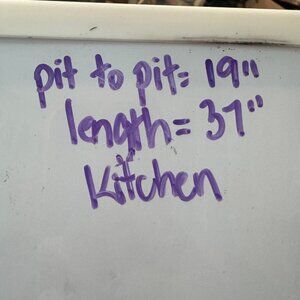 pit to pit= 19"
length= 37"
Kitchen